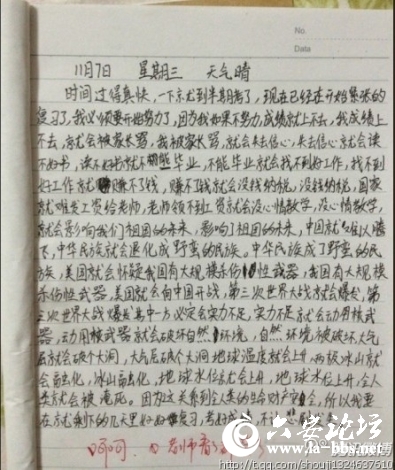 No.
Data
11月7日 星期三 天气晴
时间过得真快,一下就到半期考了,现在已经在开始紧张的
复习了,我必须要开始努力了,因为我如果不努力,成绩就上不去,我成绩上
不去,就会被家长骂,我被家长骂,就会失去信心,失去信心就会读
不好书,读不好书就不能毕业,不能毕业就会找不到好工作,找不到
好工作就赚不了钱,赚不了钱就会没钱纳税,没钱纳税,国家
就难发工资给老师,老师领不到工资就会没心情教学,没心情教学,
就会影响我们祖国的未来,影响了祖国的未来,中国就难以腾
飞,中华民族就会退化成野蛮的民族。中华民族成了野蛮的民
族,美国就会怀疑我国有大规模杀伤性武器,我国有大规模
杀伤性武器,美国就会向中国开战,第三次世界大战就会爆发,第
三次世界大战爆发其中一方必定会实力不足,实力不足就会动用核武
器,动用核武器就会破坏自然环境,自然环境被破坏大气
层就会破个大洞,大气层破个大洞地球温度就会上升,两极冰山就
会融化,冰山融化,地球水位就会上升,地球水位上升,全人
类就会被淹死。因为这关系到全人类的生命财产安全,所以我要
在就剩下的几天里好好复习,考好成绩,不让
呵呵
六安论坛
la-bbs.net
http://t.qq.com/shouji1324637510